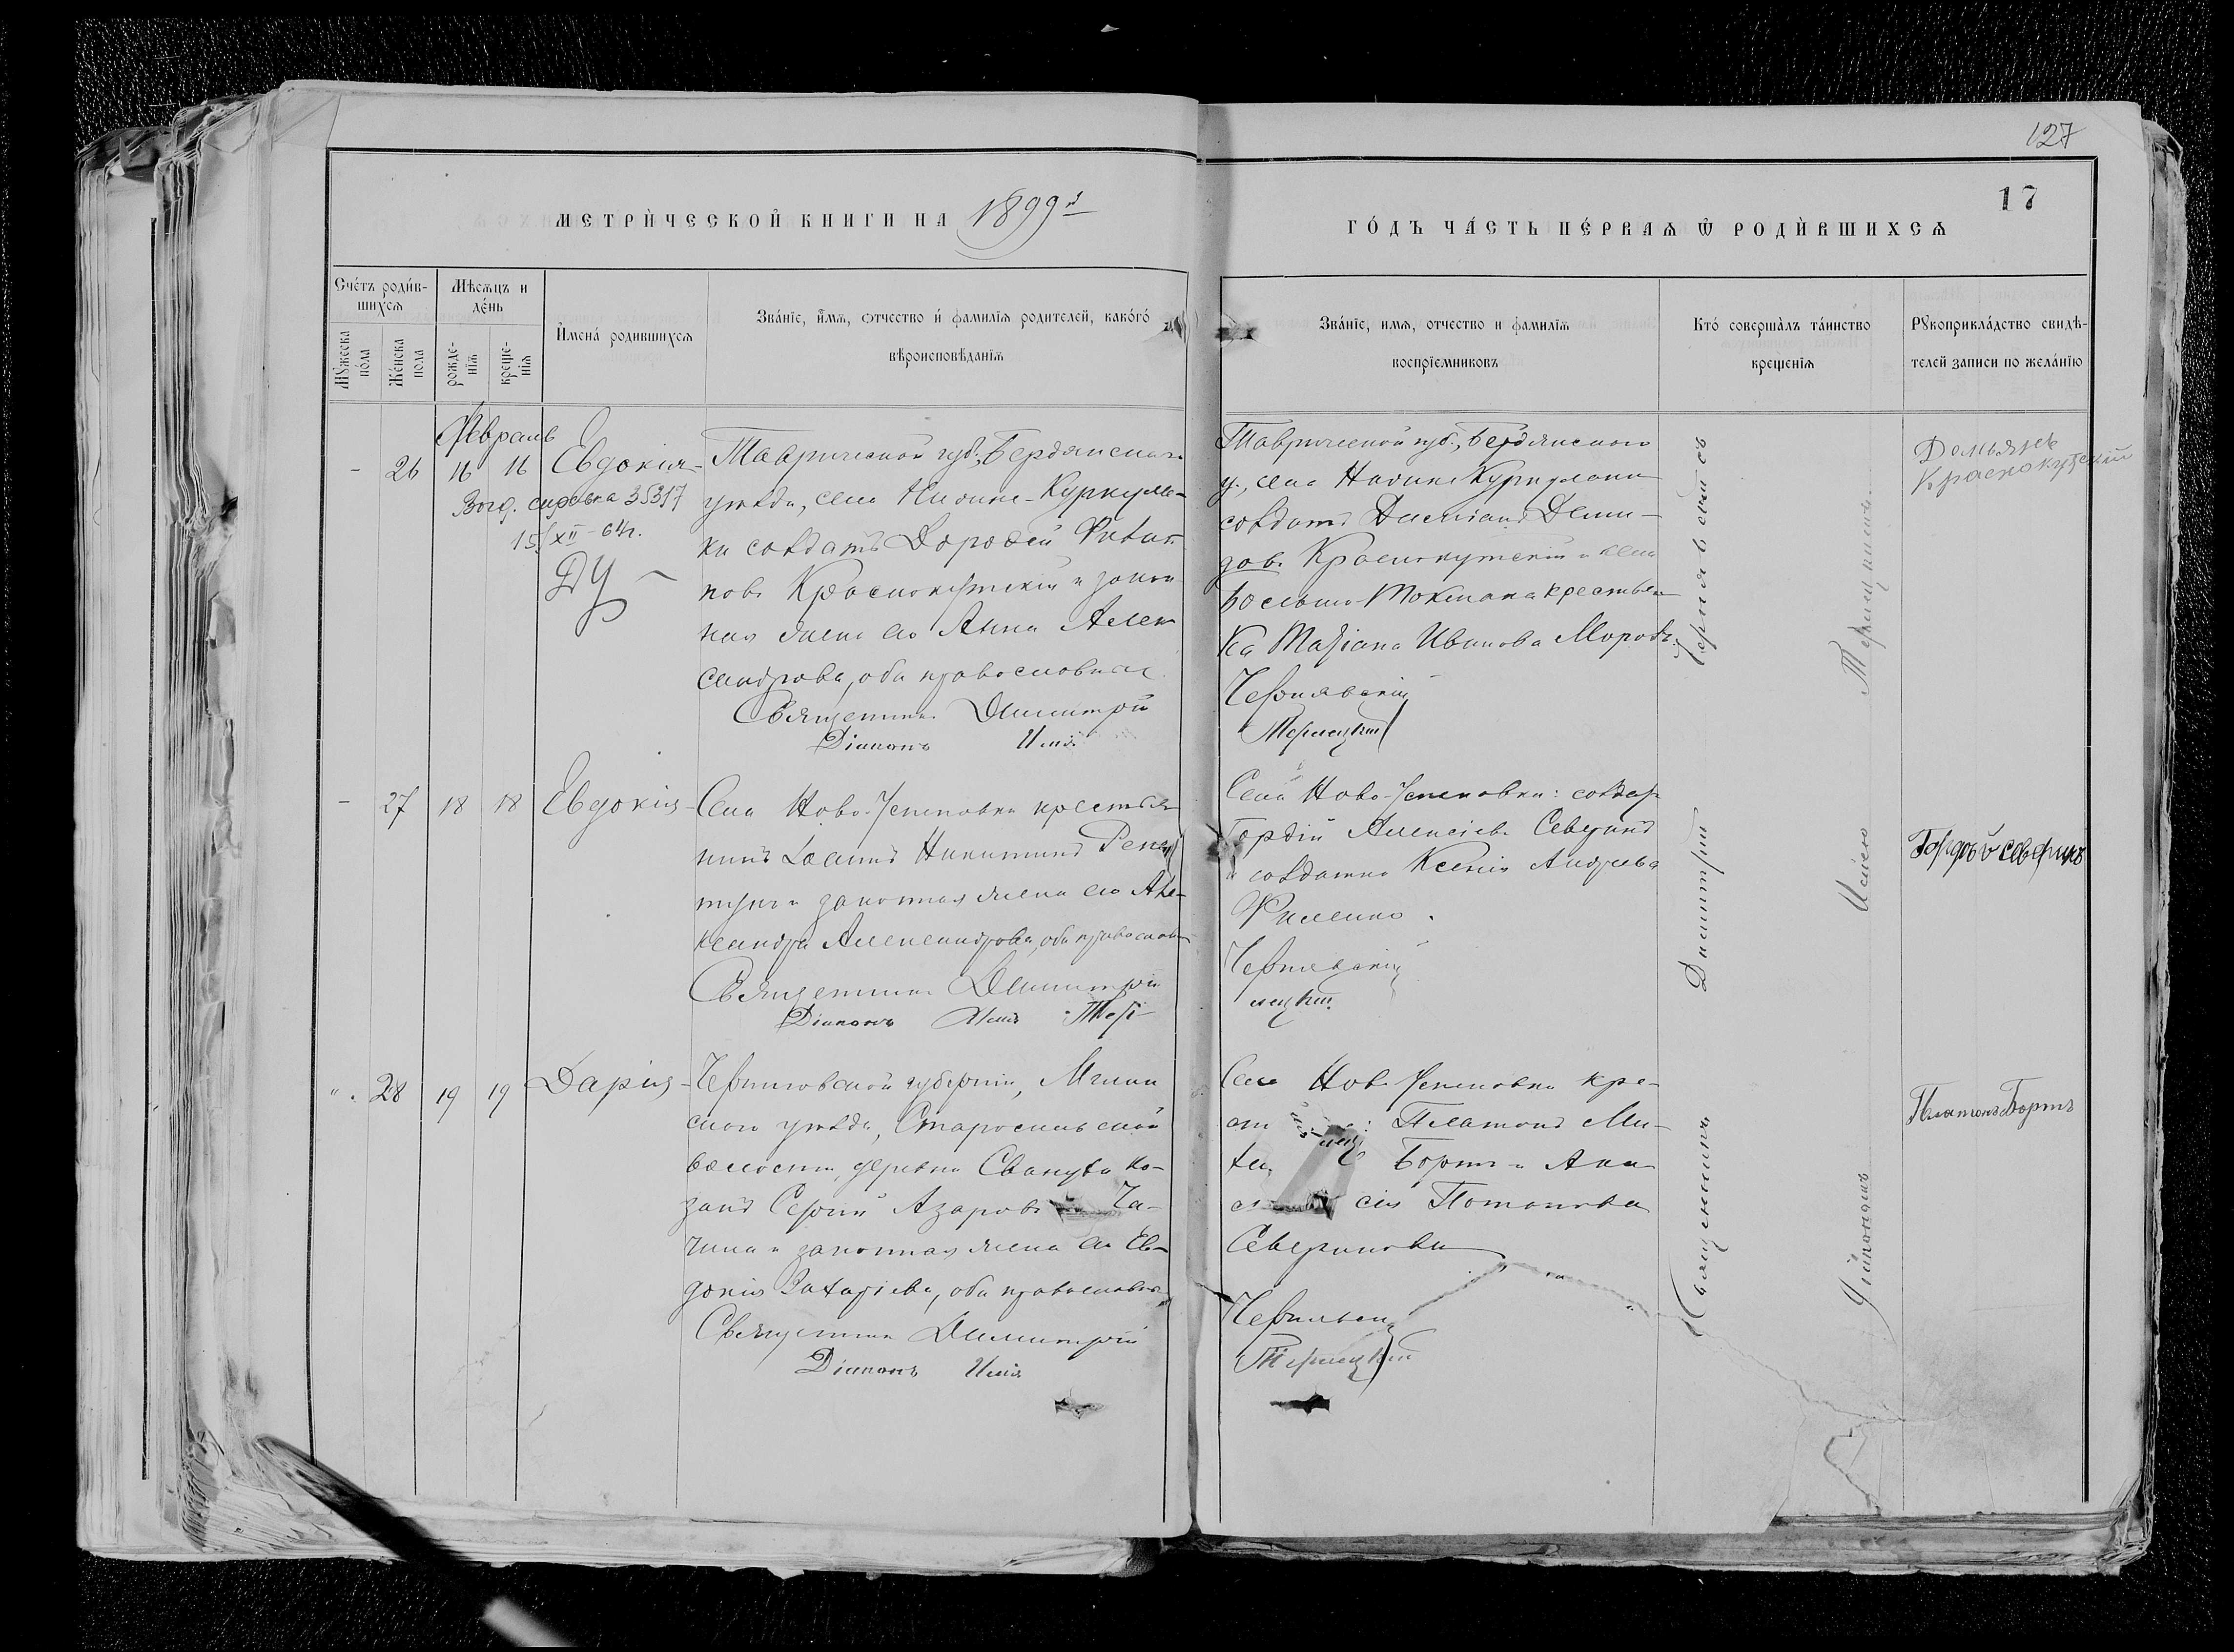 127
17
МЕТРИЧЕСКОЙ КНИГИ НА 1899й
ГОДЪ ЧАСТЬ ПЕРВАЯ Ѿ РОДИВШИХСЯ
Счетъ родив-
шихся
Мѣсяцъ и
день
Мужеска
пола
Женска
пола
рожде-
нія
креще-
нія
Имена родившихся
Званіе, имя, отчество и фамилія родителей, какого
вѣроисповѣданія
Званіе, имя, отчество и фамилія
воспріемниковъ
Кто совершалъ таинство
крещенія
Рукоприкладство свидѣ-
телей записи по желанію
Февраль
- 26 16 16 Евдокія
справка 35317
15/XII-64г.
Таврической губ., Бердянскаго
уѣзда, села Нижние-Куркула-
ки солдатъ Дороѳей
повъ Краснокутскій и закон
ная жена его Анна Алек
сандрова, оба православные
Священникъ Димитрій
Діаконъ Илія
Таврической губ., Бердянскаго
у., села Нижние Куркулаки
солдатъ Даміанъ Деми-
довъ Краснокутскій и села
Большо-Токмака крестьян
ка Маріана Иванова Морозъ.
Чернявскій
Терлецкій
Демьянъ
Краснокуцкий
- 27 18 18 Евдокія
Села Ново-Успеновки крестья
нинъ Іоаннъ Никитинъ
и законная жена его Але-
ксандра Александрова, оба православн
Священникъ Димитрій
Діаконъ Илія Тер-
Села Ново-Успеновки: солдат
Гордій Алексіевъ Северинъ
и солдатка Ксенія Андреева
Филенко.
Чернявскій
лецкій.
Гордѣй Северинъ
" 28 19 19 Дарія
Черниговской губерніи, Мглин
скаго уѣзда, Старосельской
волости, деревни ко-
закъ Сергій Азаровъ Ча-
чина и законная жена его Ев-
докія Захаріева, оба православн
Священникъ Димитрій
Діаконъ Илія
Села Ново-Успеновки кре-
ст : Платонъ Ми-
ха Бортъ и Ана
ст сія Потапова
Северинова
Чернявскій
Терлецкій
Платонъ Бортъ
Священникъ Димитрій Чернявскій
Діаконъ Илія Терлецкій